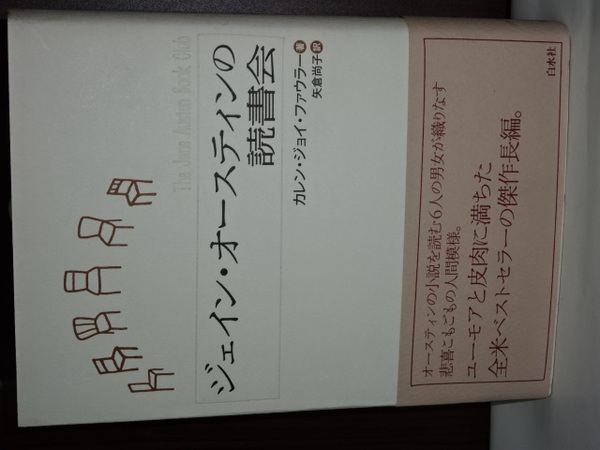 The Jane Austen Book Club
ジェイン・オースティンの
読書会
カレン・ジョイ・ファウラー 著
矢倉尚子 訳
オースティンの小説を読む6人の男女が織りなす
悲喜こもごもの人間模様。
ユーモアと皮肉に満ちた
全米ベストセラーの傑作長編。
白水社